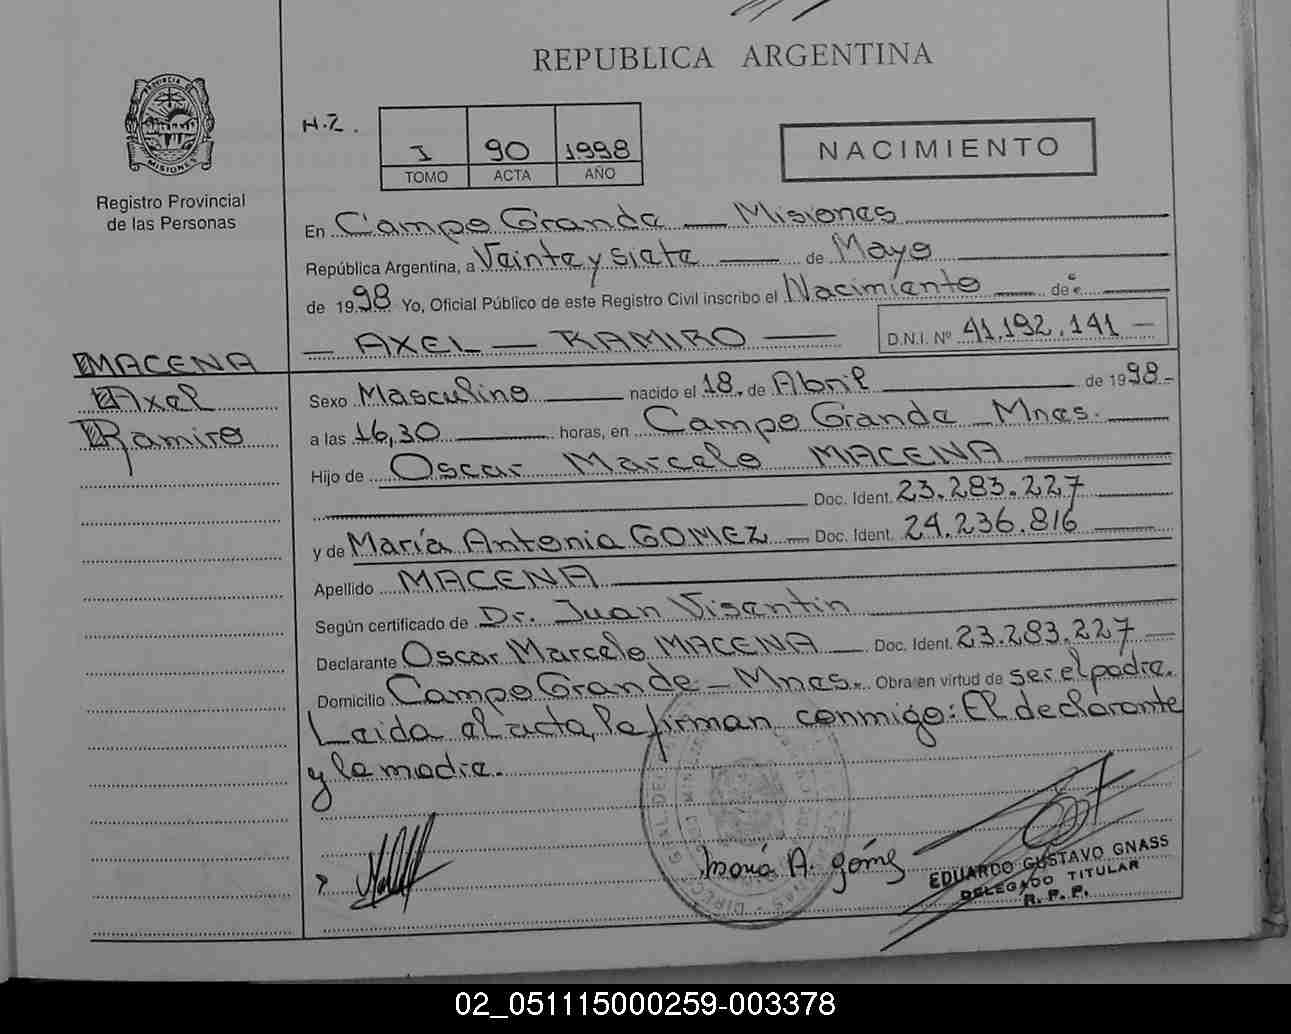 REPUBLICA ARGENTINA
PROVINCIA DE
MISIONES
Registro Provincial
de las Personas
H.Z.
I 90 1998
TOMO ACTA AÑO
NACIMIENTO
En Campo Grande — Misiones
República Argentina, a Veinte y siete — de Mayo
de 1998 Yo, Oficial Público de este Registro Civil inscribo el Nacimiento — de
— AXEL — RAMIRO — D.N.I. Nº 41.192.141 —
MACENA
Axel
Ramiro
Sexo Masculino — nacido el 18, de Abril — de 1998 -
a las 16,30 — horas, en Campo Grande Mnes. —
Hijo de Oscar Marcelo MACENA
Doc. Ident. 23.283.227
y de María Antonia GOMEZ — Doc. Ident. 24.236.816
Apellido MACENA
Según certificado de Dr. Juan Visentin
Declarante Oscar Marcelo MACENA — Doc. Ident. 23.283.227 —
Domicilio Campo Grande – Mnes. Obra en virtud de ser el padre.
Leida el acta, la firman conmigo: El declarante
y la madre.
María A. gómez
EDUARDO GUSTAVO GNASS
DELEGADO TITULAR
R. P. P.
02_051115000259-003378